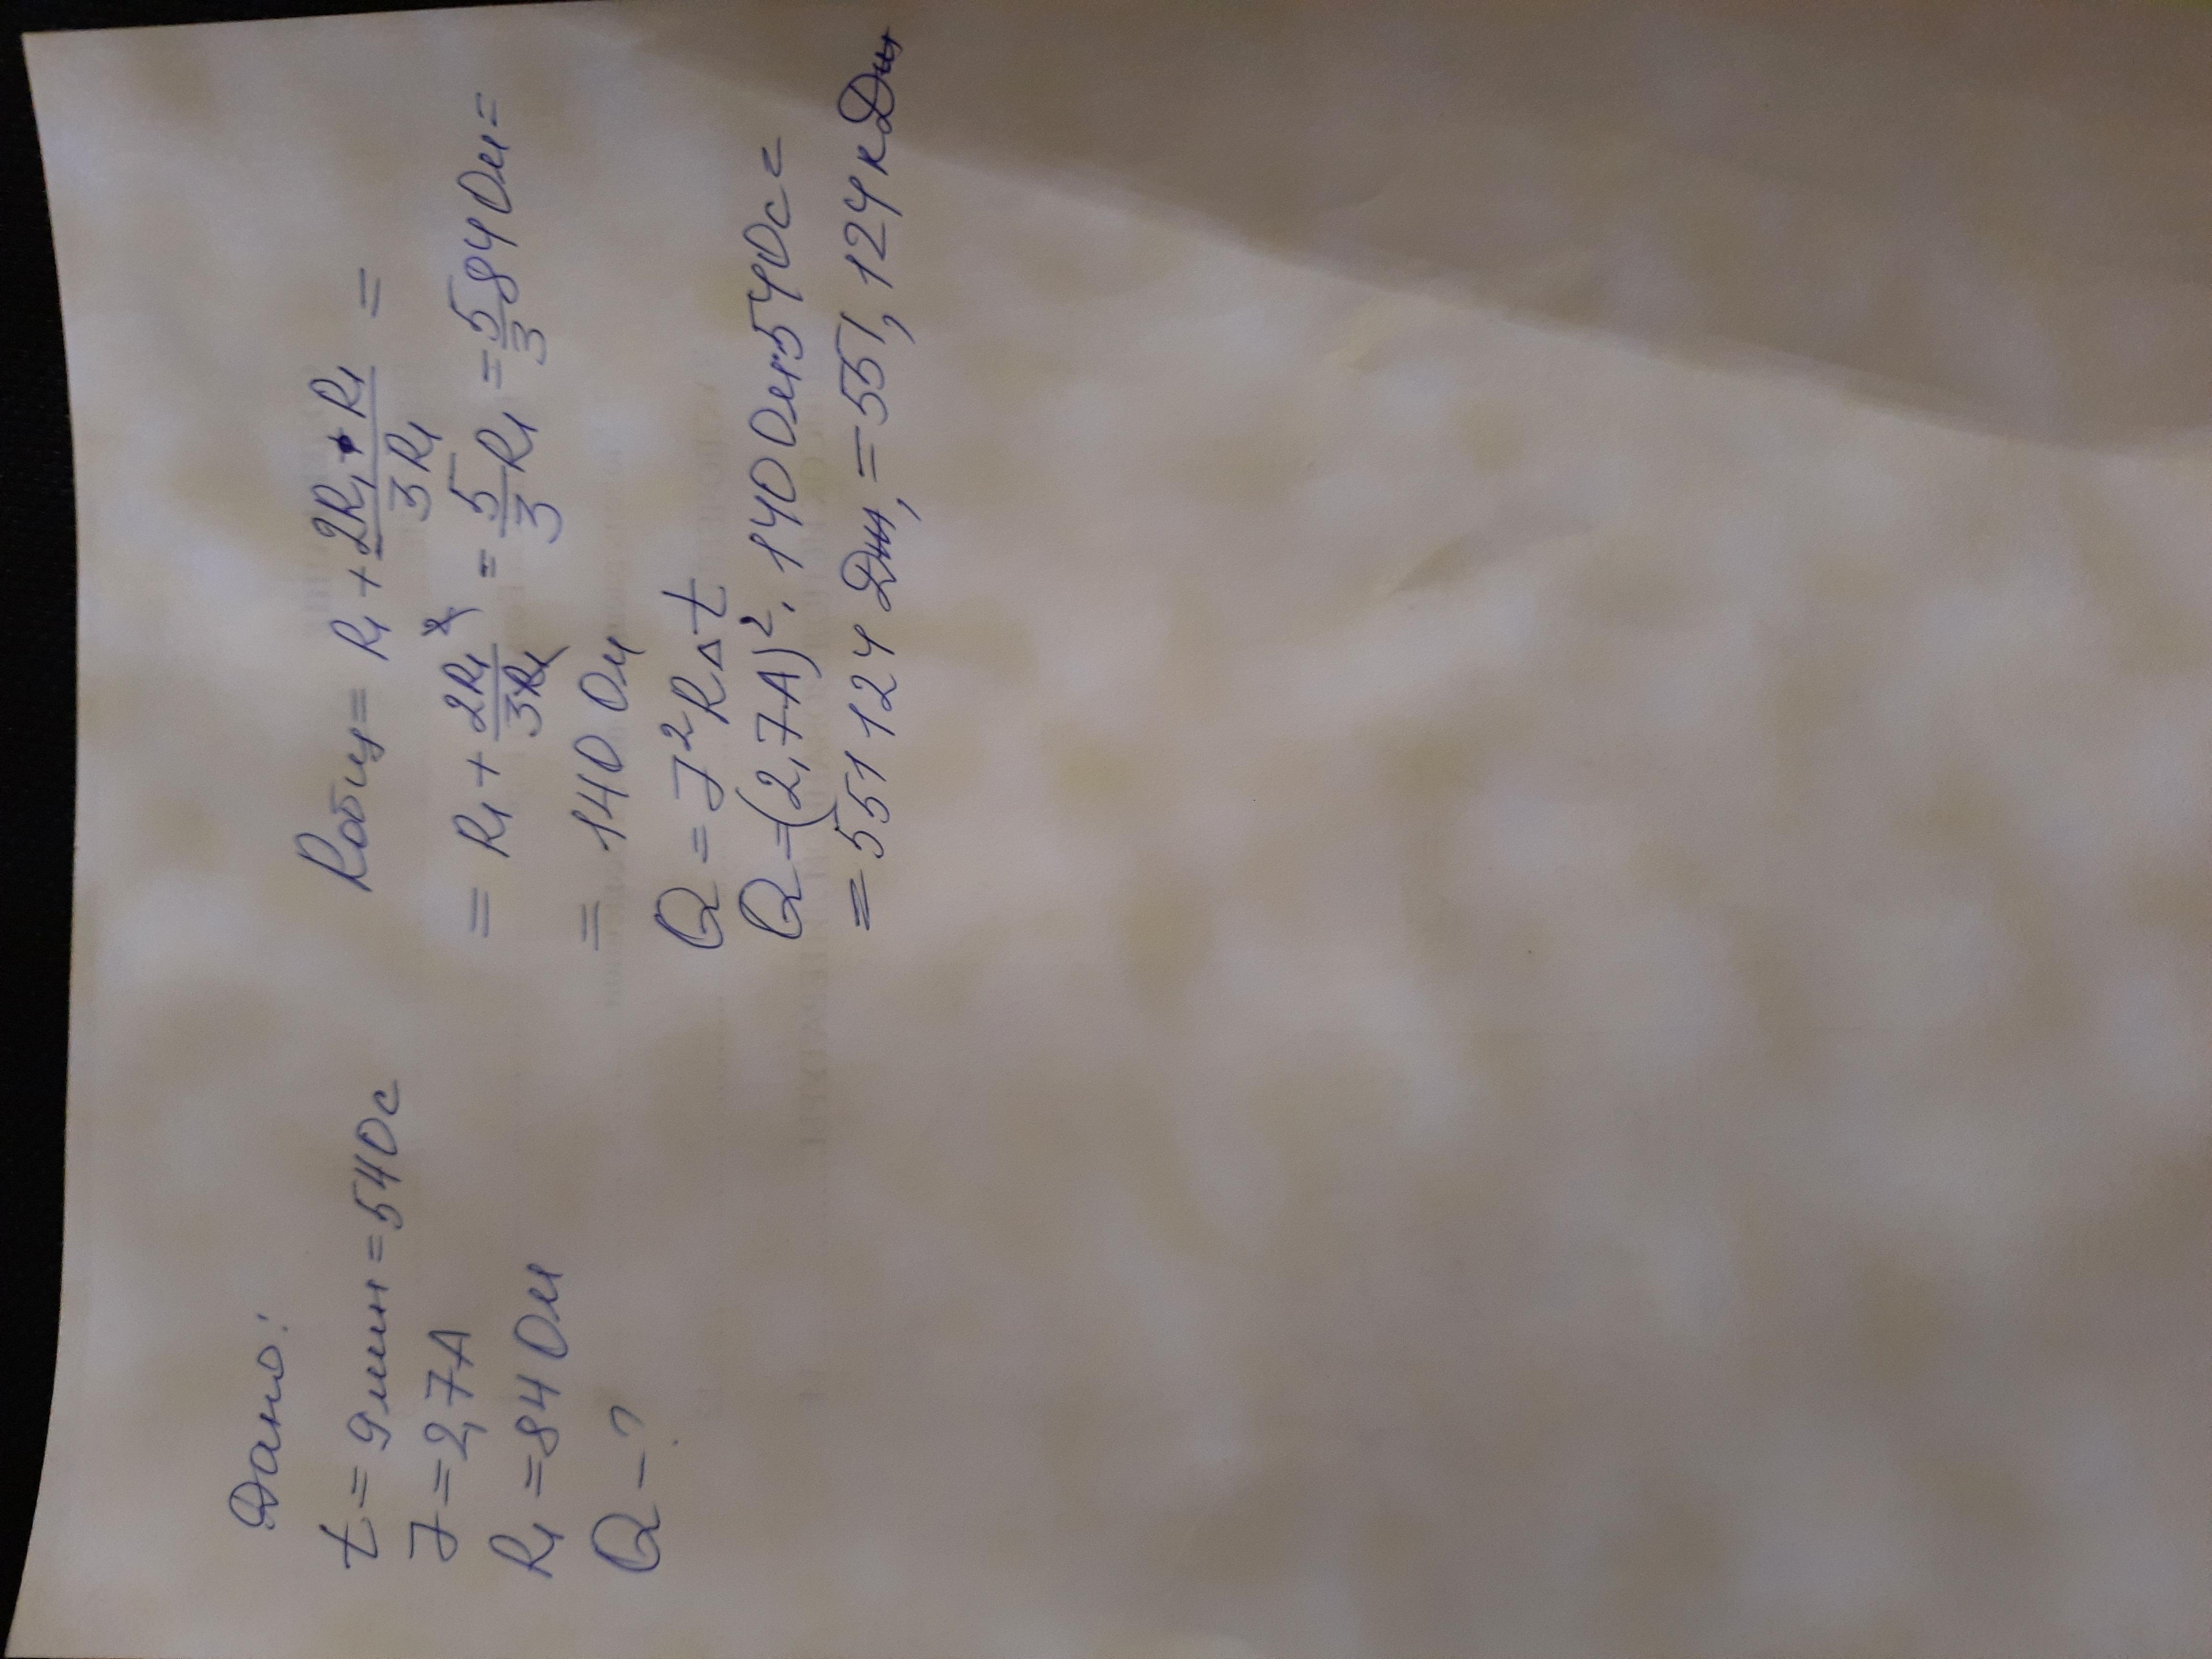 Дано:
t = 9 мин = 540с
J = 2,7A
R1 = 84 Ом
Q - ?
Rобщ = R1 + 2R1 · R1 / 3R1 =
= R1 + 2R1² / 3R1 = 5/3 R1 = 5/3 84 Ом =
= 140 Ом
Q = J²R△t
Q = (2,7A)² · 140 Ом · 540с =
= 551124 Дж, = 551,124 кДж